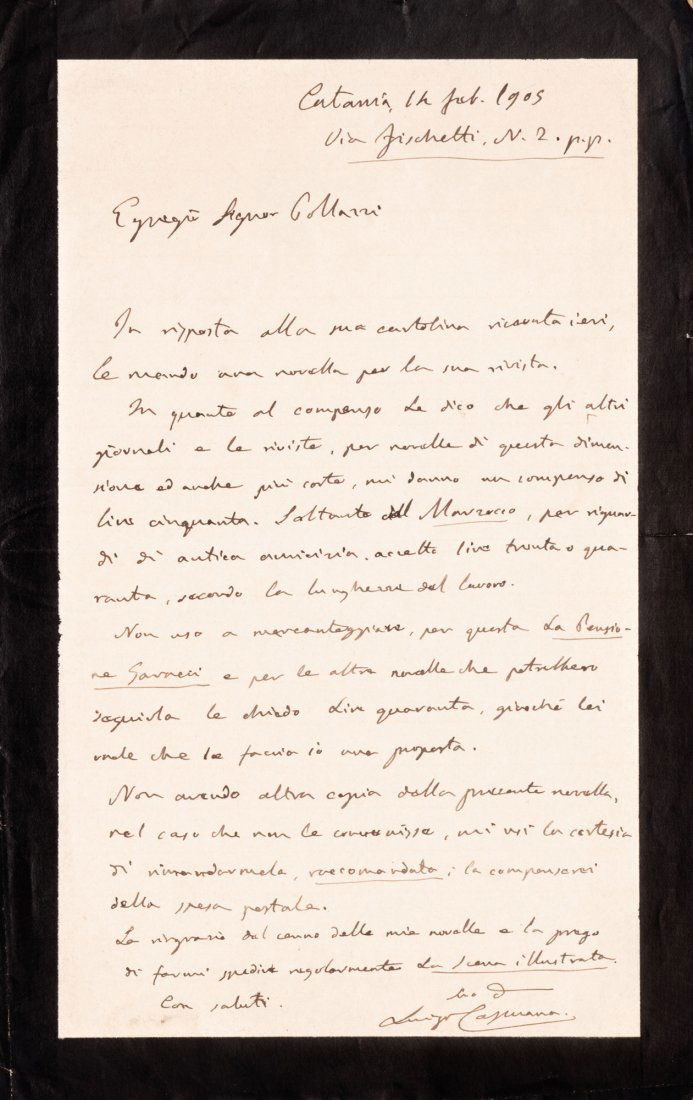 Catania, 14 feb. 1905
Via Fischetti, N. 2. p.p.
Egregio Signor Pollazzi
In risposta alla sua cartolina ricevuta ieri,
le mando una novella per la sua rivista.
In quanto al compenso Le dico che gli altri
giornali e le riviste, per novelle di questa dimen-
sione ed anche più corte, mi danno un compenso di
lire cinquanta. Soltanto al Marzocco, per riguar-
di di antica amicizia, accetto lire trenta o qua-
ranta, secondo la lunghezza del lavoro.
Non uso a mercanteggiare, per questa La Pensio-
ne e per le altre novelle che potrebbero
seguirla le chiedo Lire quaranta, giacché lei
vuole che le faccia io una proposta.
Non avendo altra copia della presente novella,
nel caso che non le convenisse, mi usi la cortesia
di rimandarmela, raccomandata; la compenserei
della spesa postale.
La ringrazio del cenno delle mie novelle e la prego
di farmi spedire regolarmente La Scena illustrata.
Con saluti.
Luigi Capuana.